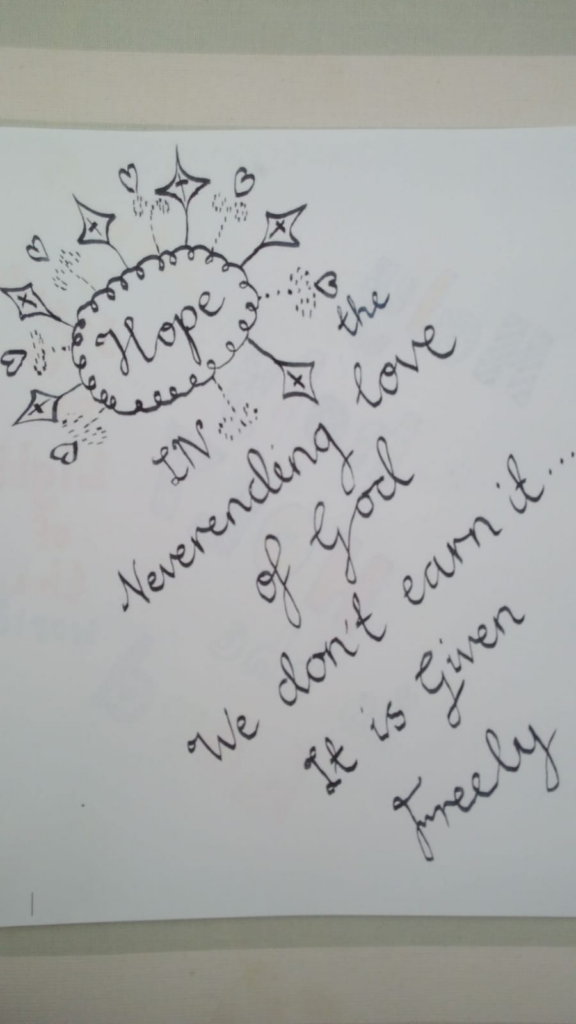 Hope
IN the
Neverending love
of God
We don't earn it...
It is Given
Freely